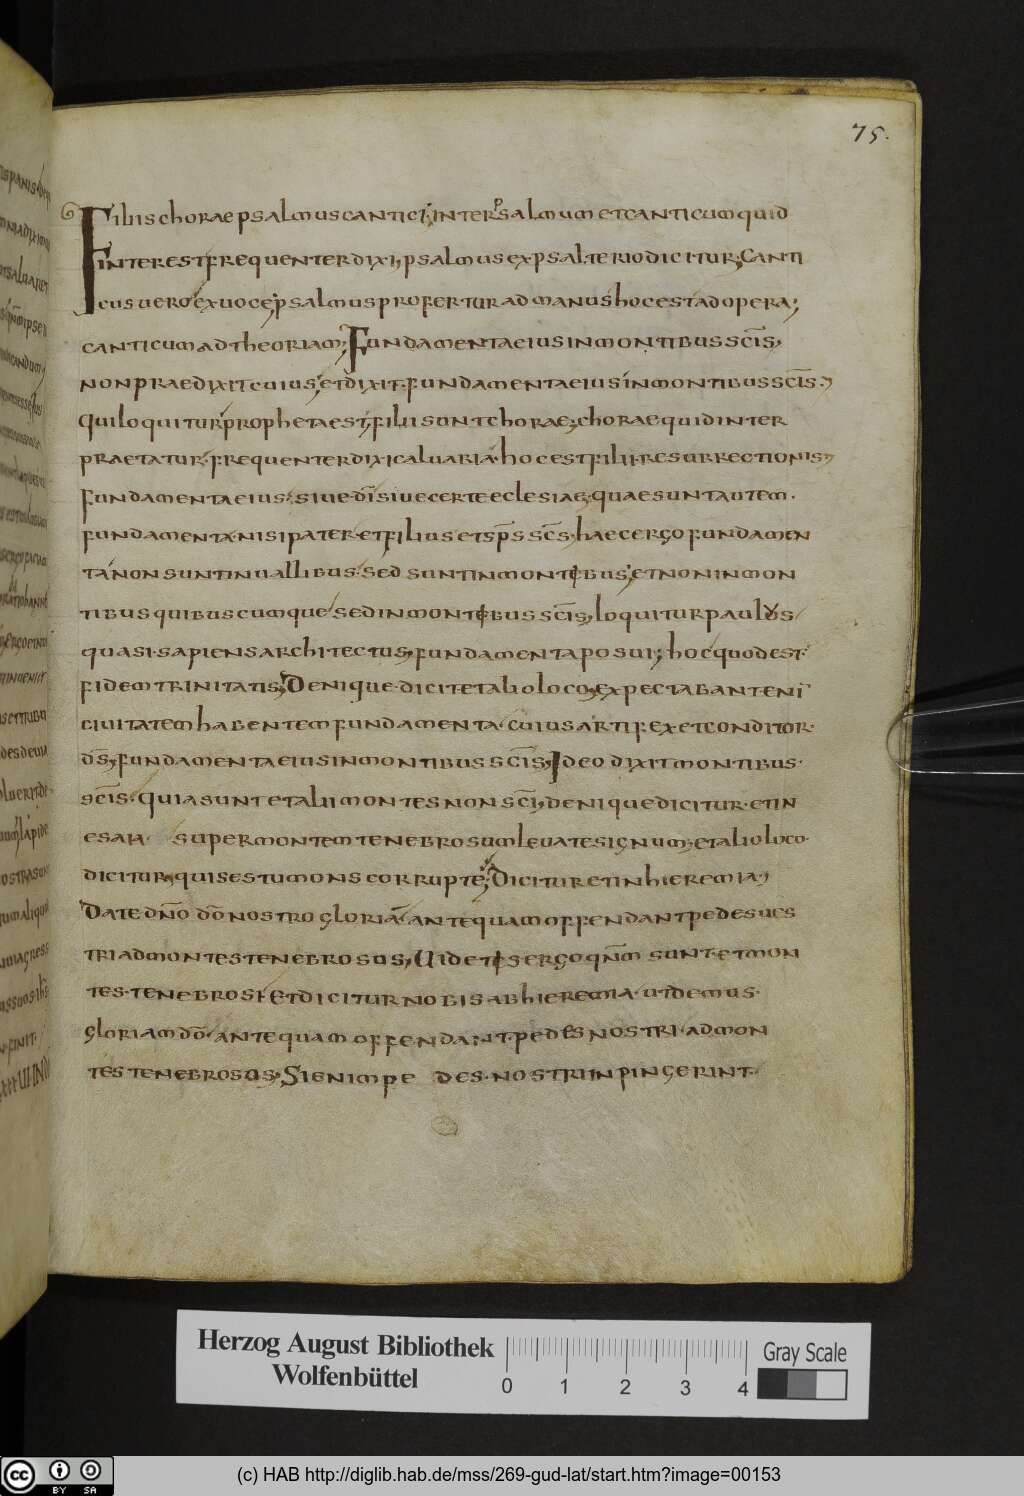 75.
Filiis chorae psalmus cantici; inter psalmum et canticum quid
interest frequenter dixi, psalmus ex psalterio dicitur; Canti
cus vero ex voce; psalmus profertur ad manus hoc est ad opera;
canticum ad theoriam; Fundamenta eius in montibus scīs,
non praedixit cuius, et dixit fundamenta eius in montibus scīs.,
Qui loquitur propheta est, filii sunt chorae; chorae quid inter
praetatur. frequenter dixi calvaria. hoc est filii resurrectionis,
fundamenta eius. sive dī sive certe eclesiae, quae sunt autem.
fundamenta. nisi pater et filius et sps̄ scs̄, haec ergo fundamen
ta non sunt in vallibus. sed sunt in montibus, et non in mon
tibus quibuscumque sed in montibus scīs, loquitur paulus
quasi sapiens architectus, fundamenta posui; hoc quod est.
fidem trinitatis, Denique dicit et alio loco, expectabant eni
civitatem habentem fundamenta. cuius artifex et conditor.
ds̄, fundamenta eius in montibus scīs, Ideo dixit montibus.
scīs. quia sunt et alii montes non scī, denique dicitur. et in
esaia. super montem tenebrosum levate signum, et alio loco.
dicitur, quis es tu mons corrupte; Dicitur et in hieremia,
Date dño dō nostro gloriā. antequam offendant pedes ves
tri ad montes tenebrosos, Videtis ergo qnm̄ sunt et mon
tes tenebrosi. Et dicitur nobis ab hieremia. ut demus.
gloriam dō. antequam offendant pedes nostri. ad mon
tes tenebrosos, Si enim pe des. nostri inpingerint.
Herzog August Bibliothek
Wolfenbüttel
0 1 2 3 4
Gray Scale
cc BY SA
(c) HAB http://diglib.hab.de/mss/269-gud-lat/start.htm?image=00153